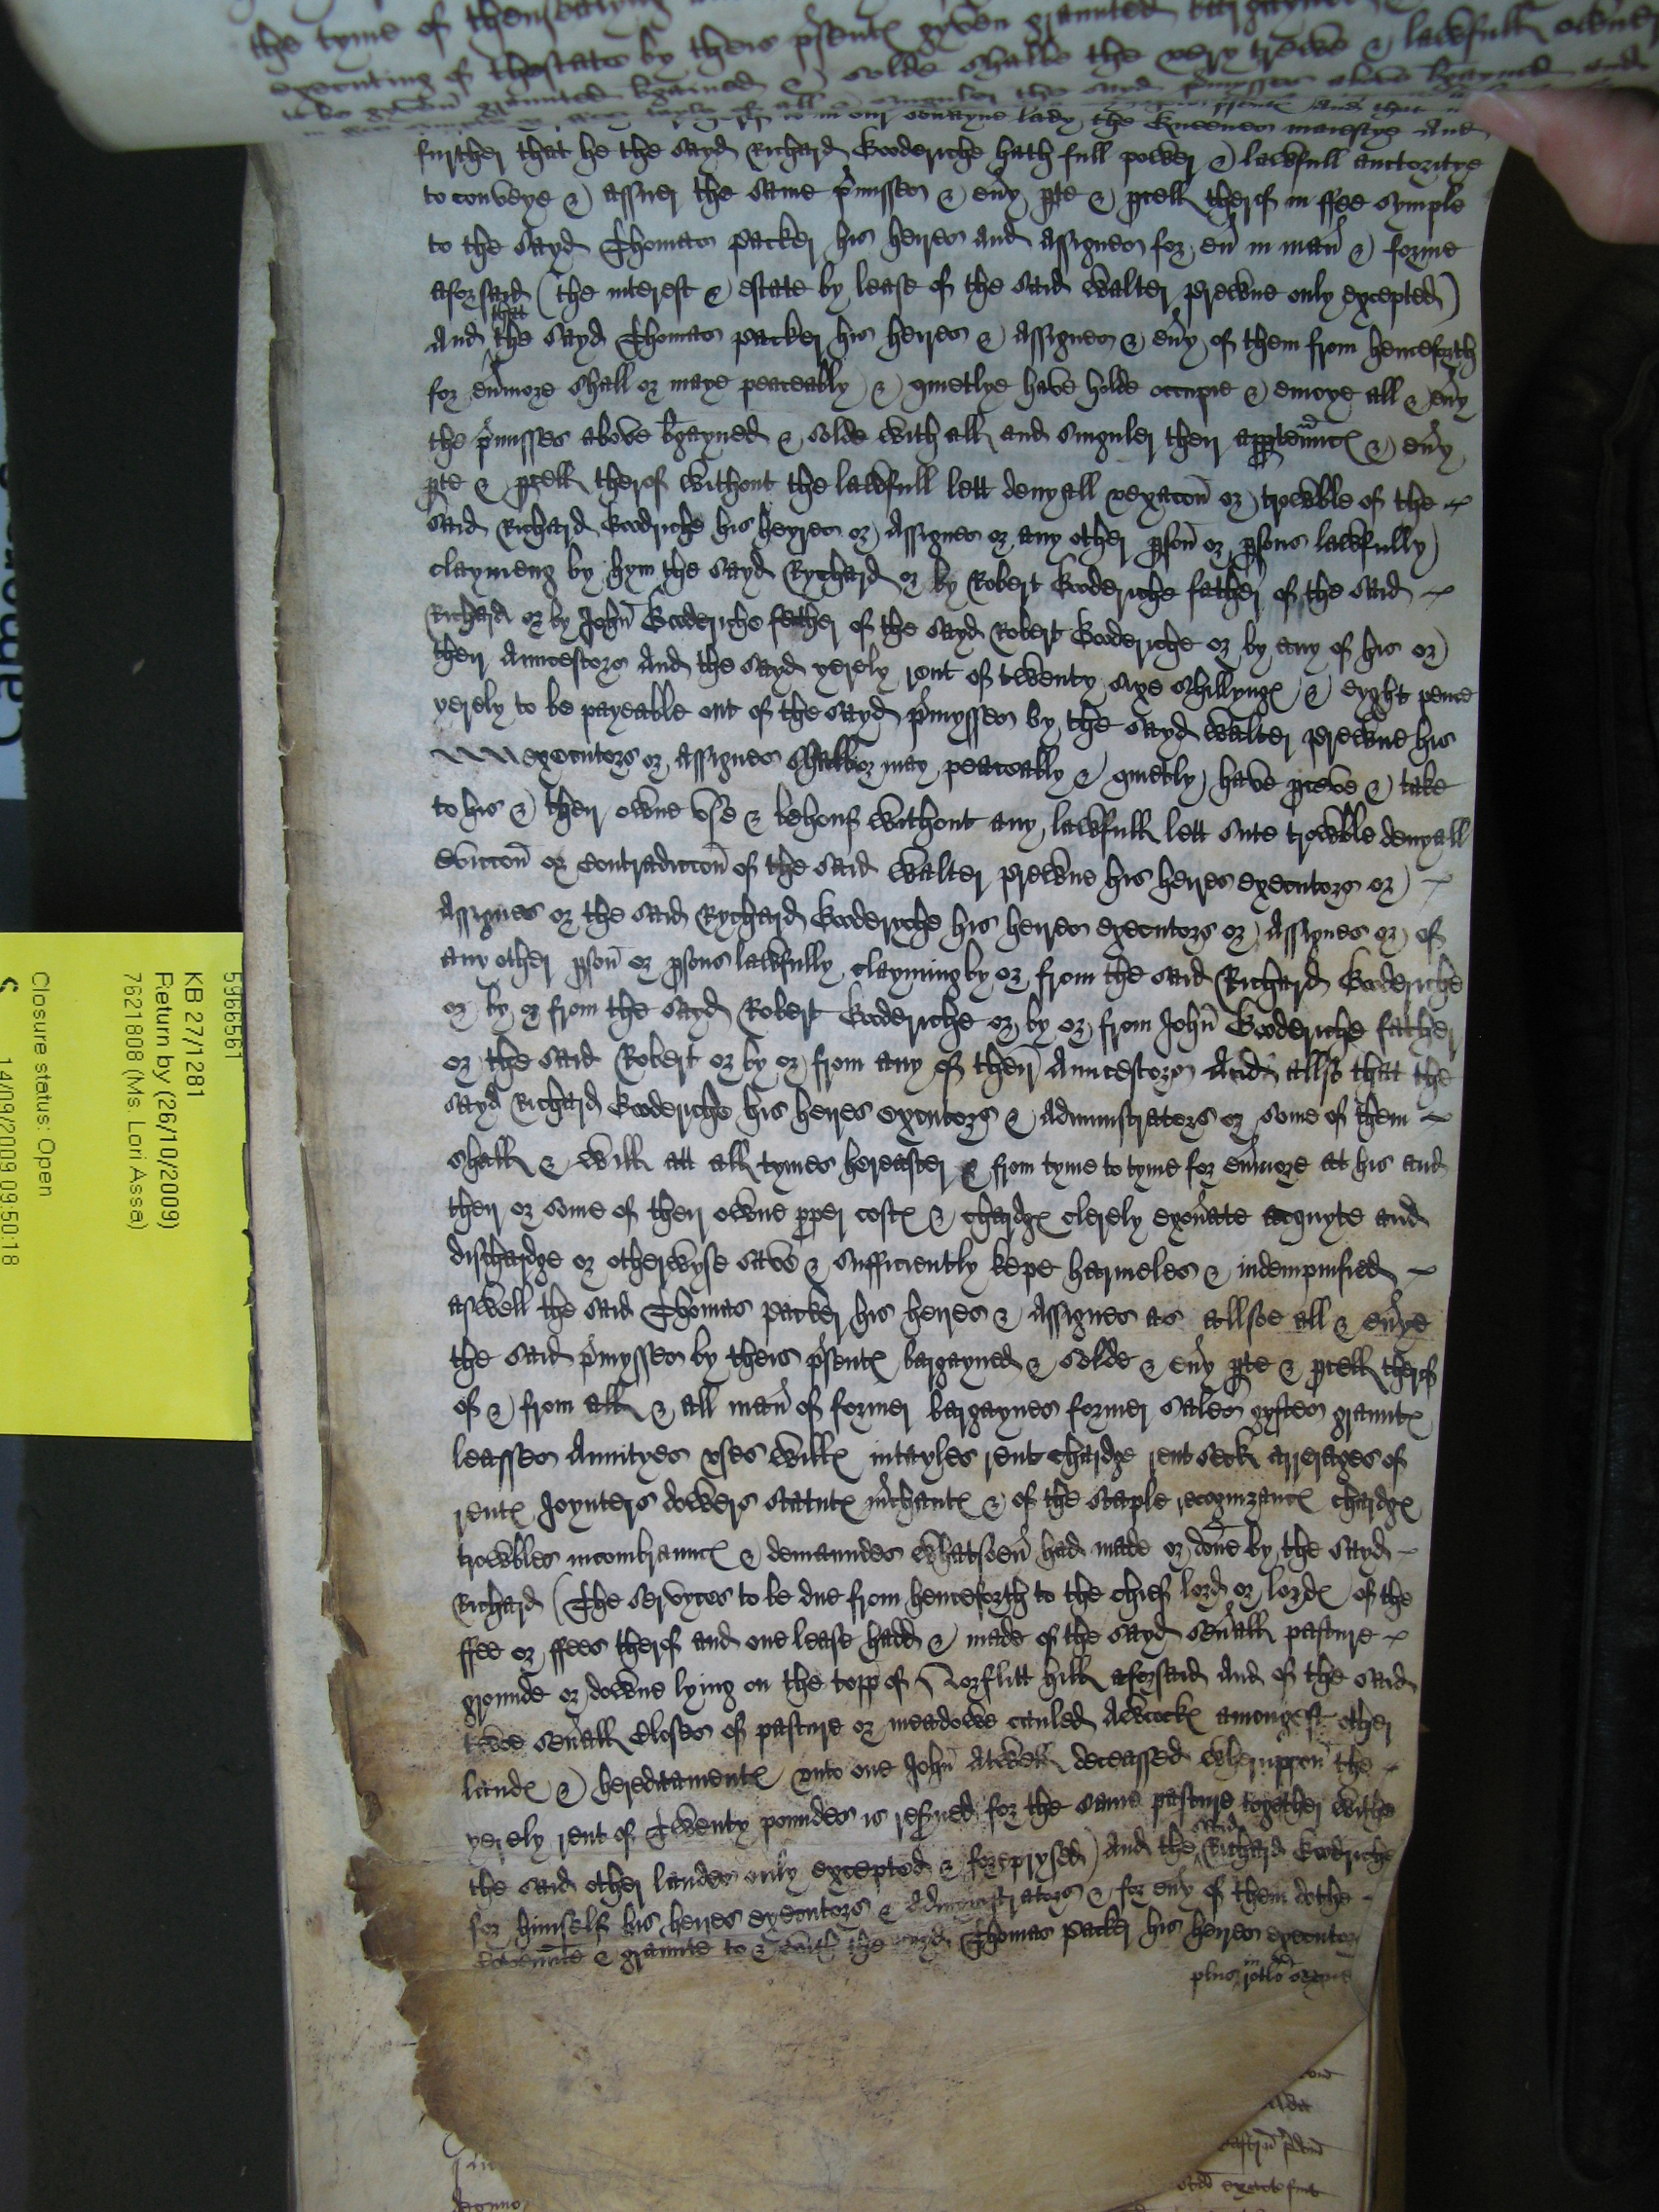 the tyme of thensealyng
executing of thestate by theis p'sent℮ gyven graunted bargayned
to be gyven graunted bgained & solde shalbe the very trewe & lawfull owner
of all & singuler the sayd p'misses above bgayned and
our soverayne lady the Queenes maiestye And
further that he the sayd Richard Gooderiche hath full power & lawfull auctoritye
to conveye & assuer the same p'misses & eu'y pte & pcell therof in ffee symple
to the sayd Thomas Packer his heires and assignes for eu' in man' & forme
aforsaid (the interest & estate by lease of the said Walter Prewne only excepted)
And that the sayd Thomas Packer his heires & Assignes & eu'y of them from henceforth
for eu'more shall or maye peaceably & quietlye have holde occupie & enioye all & eu'y
the p'misses above bgayned & solde with all and singuler their apptenne℮ & eu'y
pte & pcell therof without the lawfull lett denyall vexacon or trowble of the
said Richard Goodriche his heyres or Assignes or any other pson or psons lawfully
claymeng by hym the sayd Rychard or by Robert Gooderiche father of the said
Richard or by John Gooderiche father of the sayd Robert Gooderiche or by any of his or
their Auncestors And the sayd yerely rent of twenty sixe shillyng℮ & eyght pence
yerely to be payeable out of the sayd p'mysses by the sayd Walter Prewne his
executors or assignes shall or may peaceably & quietly have pceve & take
to his & their owne vse & behouf without any lawfull lett sute trowble denyall
eviccon or contradiccon of the said Walter Prewne his heires executors or
Assignes or the said Rychard Gooderyche his heires executors or Assignes or of
any other pson or psons lawfully clayming by or from the said Richard Gooderiche
or by or from the sayd Robert Gooderiche or by or from John Gooderiche father
or the said Robert or by or from any of their Auncestors And allso that the
sayd Richard Gooderiche his heires exeutors & Administrators or some of them
shall & will att all tymes hereafter & from tyme to tyme for eu'more at his and
their or some of their owne pper cost℮ & chardg℮ clerely exon'ate acquyte and
dischardge or otherwyse save & sufficiently kepe harmeles & indempnified
aswell the said Thomas Packer his heires & Assignes as allsoe all & eu'ye
the said p'mysses by theis p'sent℮ bargayned & solde & eu'y pte & pcell therof
of & from all & all man' of former bargaynes former sales gyftes graunt℮
leasses Annityes vses will℮ intayles rent chardge rent seck arrerages of
rent℮ Joynters dowers statut℮ m'chant℮ & of the staple recognizanc℮ chardg℮
trowbles incombraunc℮ & demaundes whatsoeu' had made or done by the sayd
Richard (The servyces to be due from henceforth to the chief lord or lord℮ of the
ffee or ffees therof and one lease hadd & made of the sayd seu'all pasture
grounde or downe lying on the topp of Norflitt hill aforsaid And of the said
twoe seu'all Closes of pasture or meadowe cauled Awcock℮ amongest other
land℮ & hereditament℮ vnto one John Atwell deceassed wheruppon the
yerely rent of Twenty poundes is res'ued for the same pasture together withe
the said other landes only excepted & forprysed) And the said Richard Goodriche
for himself his heires executors & Administrators & for eu'y of them dothe
covennte & graunte to & with the sayd Thomas Packer his heires executors
plus in rotlo
KB 27/1281
Return by (26/10/2009)
7621808 (Ms. Lori Assa)
Closure status: Open
14/09/2009 09:50:18